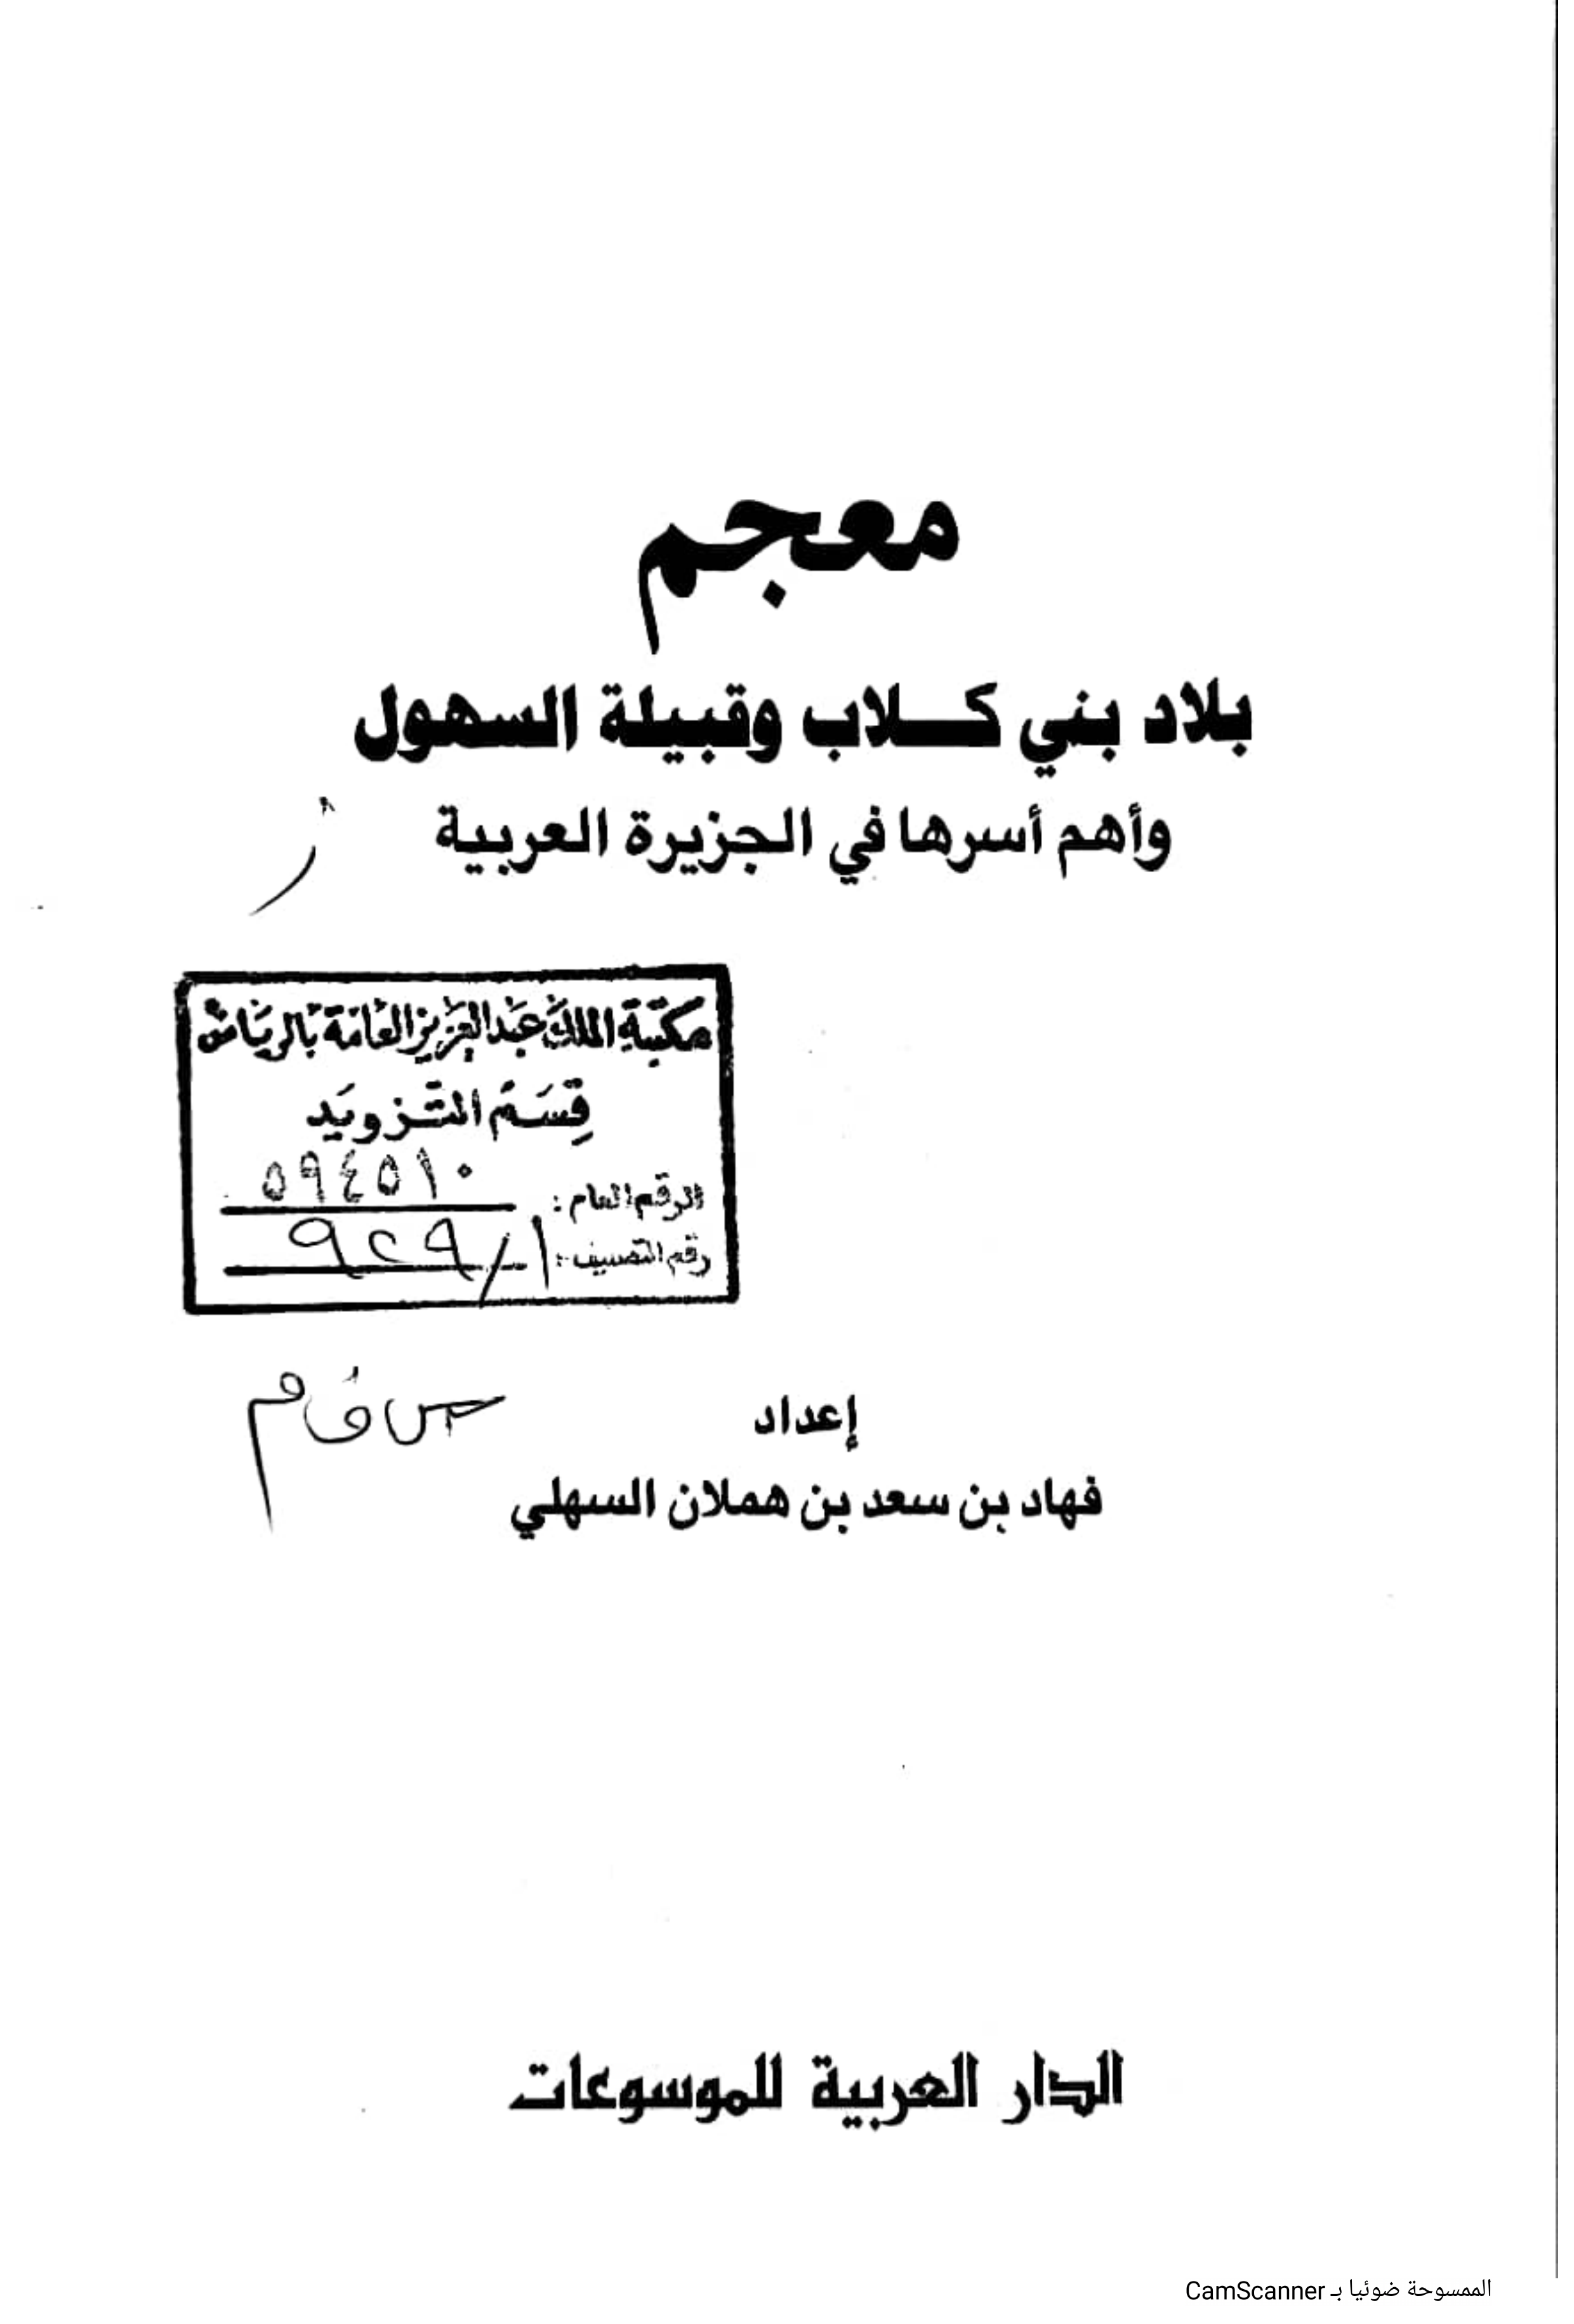 معجم
بلاد بني كلاب وقبيلة السهول
وأهم أسرها في الجزيرة العربية
مكتبة الملك عبد العزيز العامة بالرياض
قسم التزويد
الرقم العام: ٥٩٤٥١٠
رقم التصنيف: ٩٢٩/١
إعداد
فهاد بن سعد بن هملان السهلي
الدار العربية للموسوعات
الممسوحة ضوئيا بـ CamScanner